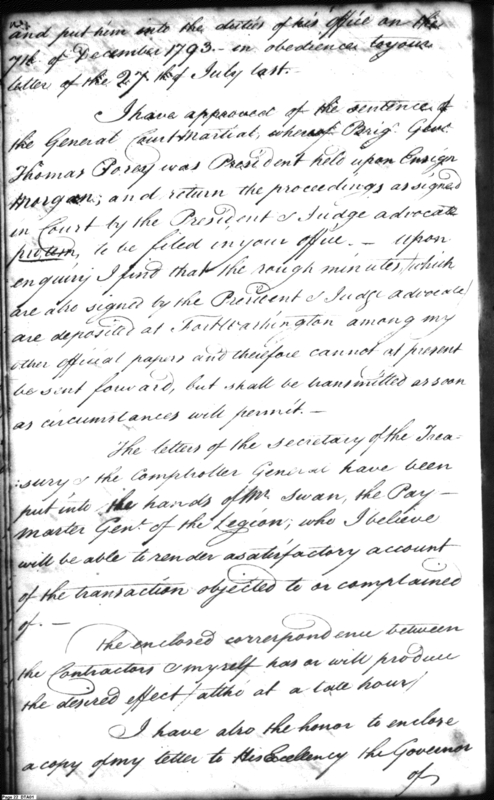 and put him into the duties of his office on the
7th. of December 1793. - in obedience to your
letter of the 27th of July last. -
I have approved of the sentence of
the General Court Martial, whereof Brig. Genl.
Thomas Posey was President held upon Ensign
Morgan; and return the proceedings as signed
in Court by the President & Judge advocate
to be filed in your office. - upon
enquiry I find that the rough minutes (which
are also signed by the President & Judge advocate)
are deposited at Fort Washington among my
other official papers and therefore cannot at present
be sent forward, but shall be transmitted as soon
as circumstances will permit. -
The letters of the Secretary of the Trea-
:sury & the Comptroller General have been
put into the hands of Mr. Swan, the Pay-
Master Genl. of the Legion; who I believe
will be able to render a satisfactory account
of the transaction objected to or complained
of. -
The enclosed correspondence between
the Contractors & myself has or will produce
the desired effect (altho at a late hour)
I have also the honor to enclose
a copy of my letter to His Excellency the Governor
of